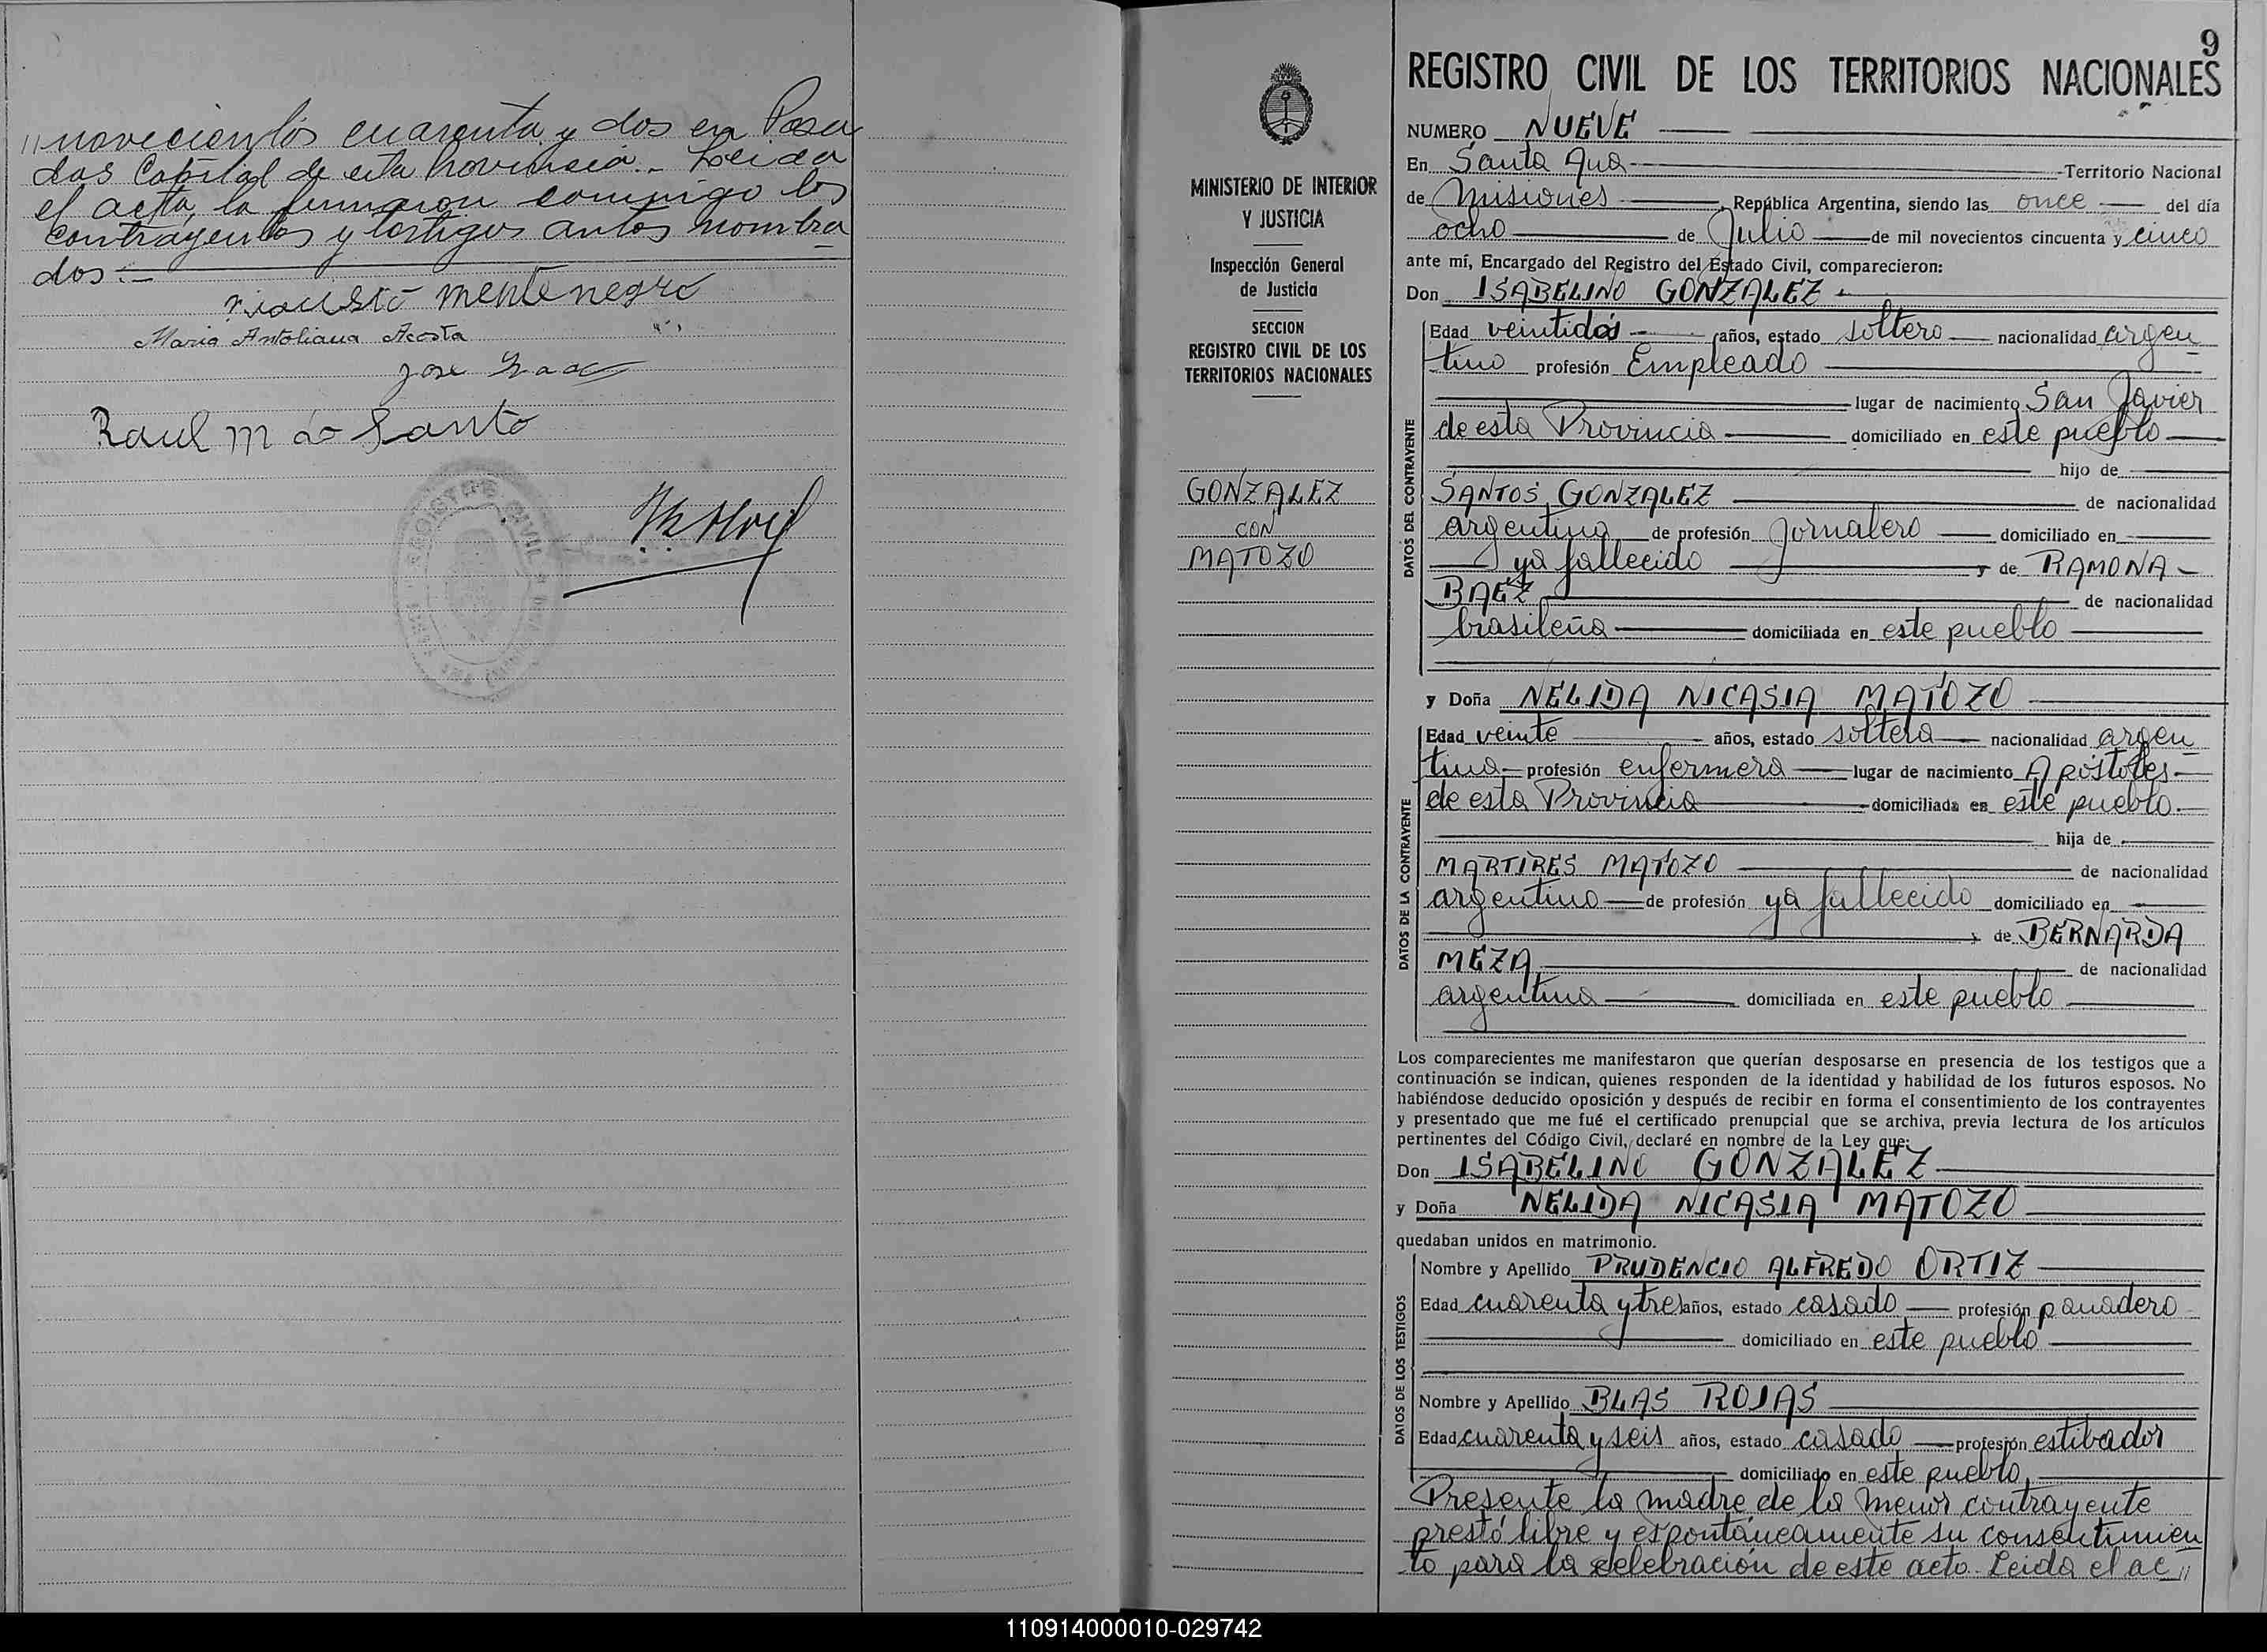 "novecientos cuarenta y dos en Posa
das Capital de esta Provincia.- Leida
el acta, la firmaron conmigo los
contrayentes y testigos antes nombra
dos.-
montenegro
Maria Antoliana Acosta
Jose
Raul M do Santo
REGISTRO CIVIL
9
REGISTRO CIVIL DE LOS TERRITORIOS NACIONALES
MINISTERIO DE INTERIOR
Y JUSTICIA
Inspección General
de Justicia
SECCION
REGISTRO CIVIL DE LOS
TERRITORIOS NACIONALES
GONZALEZ
CON
MATOZO
NUMERO NUEVE
En Santa Ana Territorio Nacional
de Misiones, República Argentina, siendo las once del día
ocho de Julio de mil novecientos cincuenta y cinco
ante mí, Encargado del Registro del Estado Civil, comparecieron:
Don ISABELINO GONZALEZ
DATOS DEL CONTRAYENTE
Edad veintidós años, estado soltero nacionalidad argen
tino profesión Empleado
lugar de nacimiento San Javier
de esta Provincia domiciliado en este pueblo
hijo de
SANTOS GONZALEZ de nacionalidad
argentina de profesión Jornalero domiciliado en
ya fallecido y de RAMONA
BAEZ de nacionalidad
brasileña domiciliada en este pueblo
y Doña NELIDA NICASIA MATOZO
DATOS DE LA CONTRAYENTE
Edad veinte años, estado soltera nacionalidad argen
tina profesión enfermera lugar de nacimiento Apóstoles
de esta Provincia domiciliada en este pueblo.
hija de
MARTIRES MATOZO de nacionalidad
argentino de profesión ya fallecido domiciliado en
y de BERNARDA
MEZA de nacionalidad
argentina domiciliada en este pueblo
Los comparecientes me manifestaron que querían desposarse en presencia de los testigos que a
continuación se indican, quienes responden de la identidad y habilidad de los futuros esposos. No
habiéndose deducido oposición y después de recibir en forma el consentimiento de los contrayentes
y presentado que me fué el certificado prenupcial que se archiva, previa lectura de los artículos
pertinentes del Código Civil, declaré en nombre de la Ley que:
Don ISABELINO GONZALEZ
y Doña NELIDA NICASIA MATOZO
quedaban unidos en matrimonio.
DATOS DE LOS TESTIGOS
Nombre y Apellido PRUDENCIO ALFREDO ORTIZ
Edad cuarenta y tres años, estado casado profesión panadero
domiciliado en este pueblo
Nombre y Apellido BLAS ROJAS
Edad cuarenta y seis años, estado casado profesión estibador
domiciliado en este pueblo.
Presente la madre de la menor contrayente
prestó libre y espontáneamente su consentimien
to para la celebración de este acto. Leida el ac"
110914000010-029742